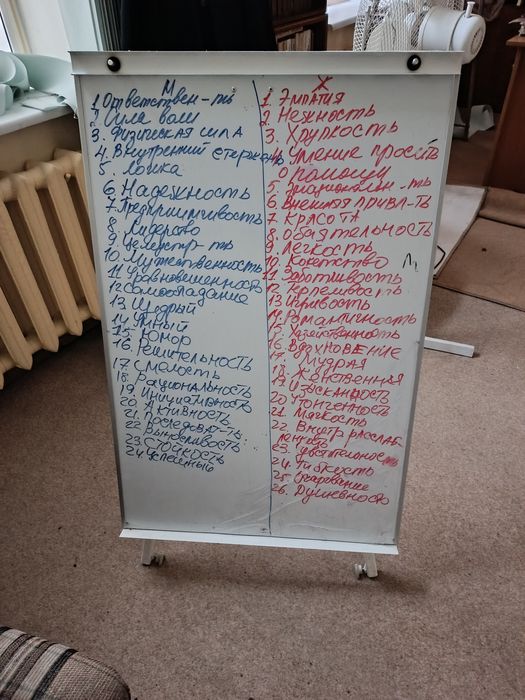 М
1. Ответствен-ть
2. Сила воли
3. Физическая сила
4. Внутренний стержень
5. Логика
6. Надежность
7. Предприимчивость
8. Лидерство
9. Целеустр-ть
10. Мужественность
11. Уравновешенность
12. Самообладание
13. Щедрый
14. Умный
15. Юмор
16. Решительность
17. Смелость
18. Рациональность
19. Инициативность
20. Активность
21. Последоват-ть
22. Выносливость
23. Стойкость
24. Успешный
Ж
1. Эмпатия
2. Нежность
3. Хрупкость
4. Умение просить
о помощи
5. Эмоциональн-ть
6. Внешняя привл-ть
7. Красота
8. Обаятельность
9. Легкость
10. Кокетство
11. Заботливость
12. Терпеливость
13. Игривость
14. Романтичность
15. Хозяйственность
16. Вдохновение
17. Мудрая
18. Женственная
19. Изысканность
20. Утонченность
21. Мягкость
22. Внутр расслаб-
ленность
23. Чувствительность
24. Гибкость
25. Очарование
26. Душевность